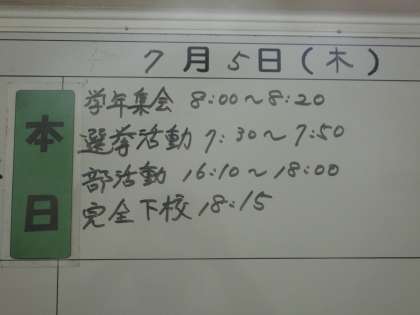 7月5日(木)
本日
学年集会 8:00～8:20
選挙活動 7:30～7:50
部活動 16:10～18:00
完全下校 18:15